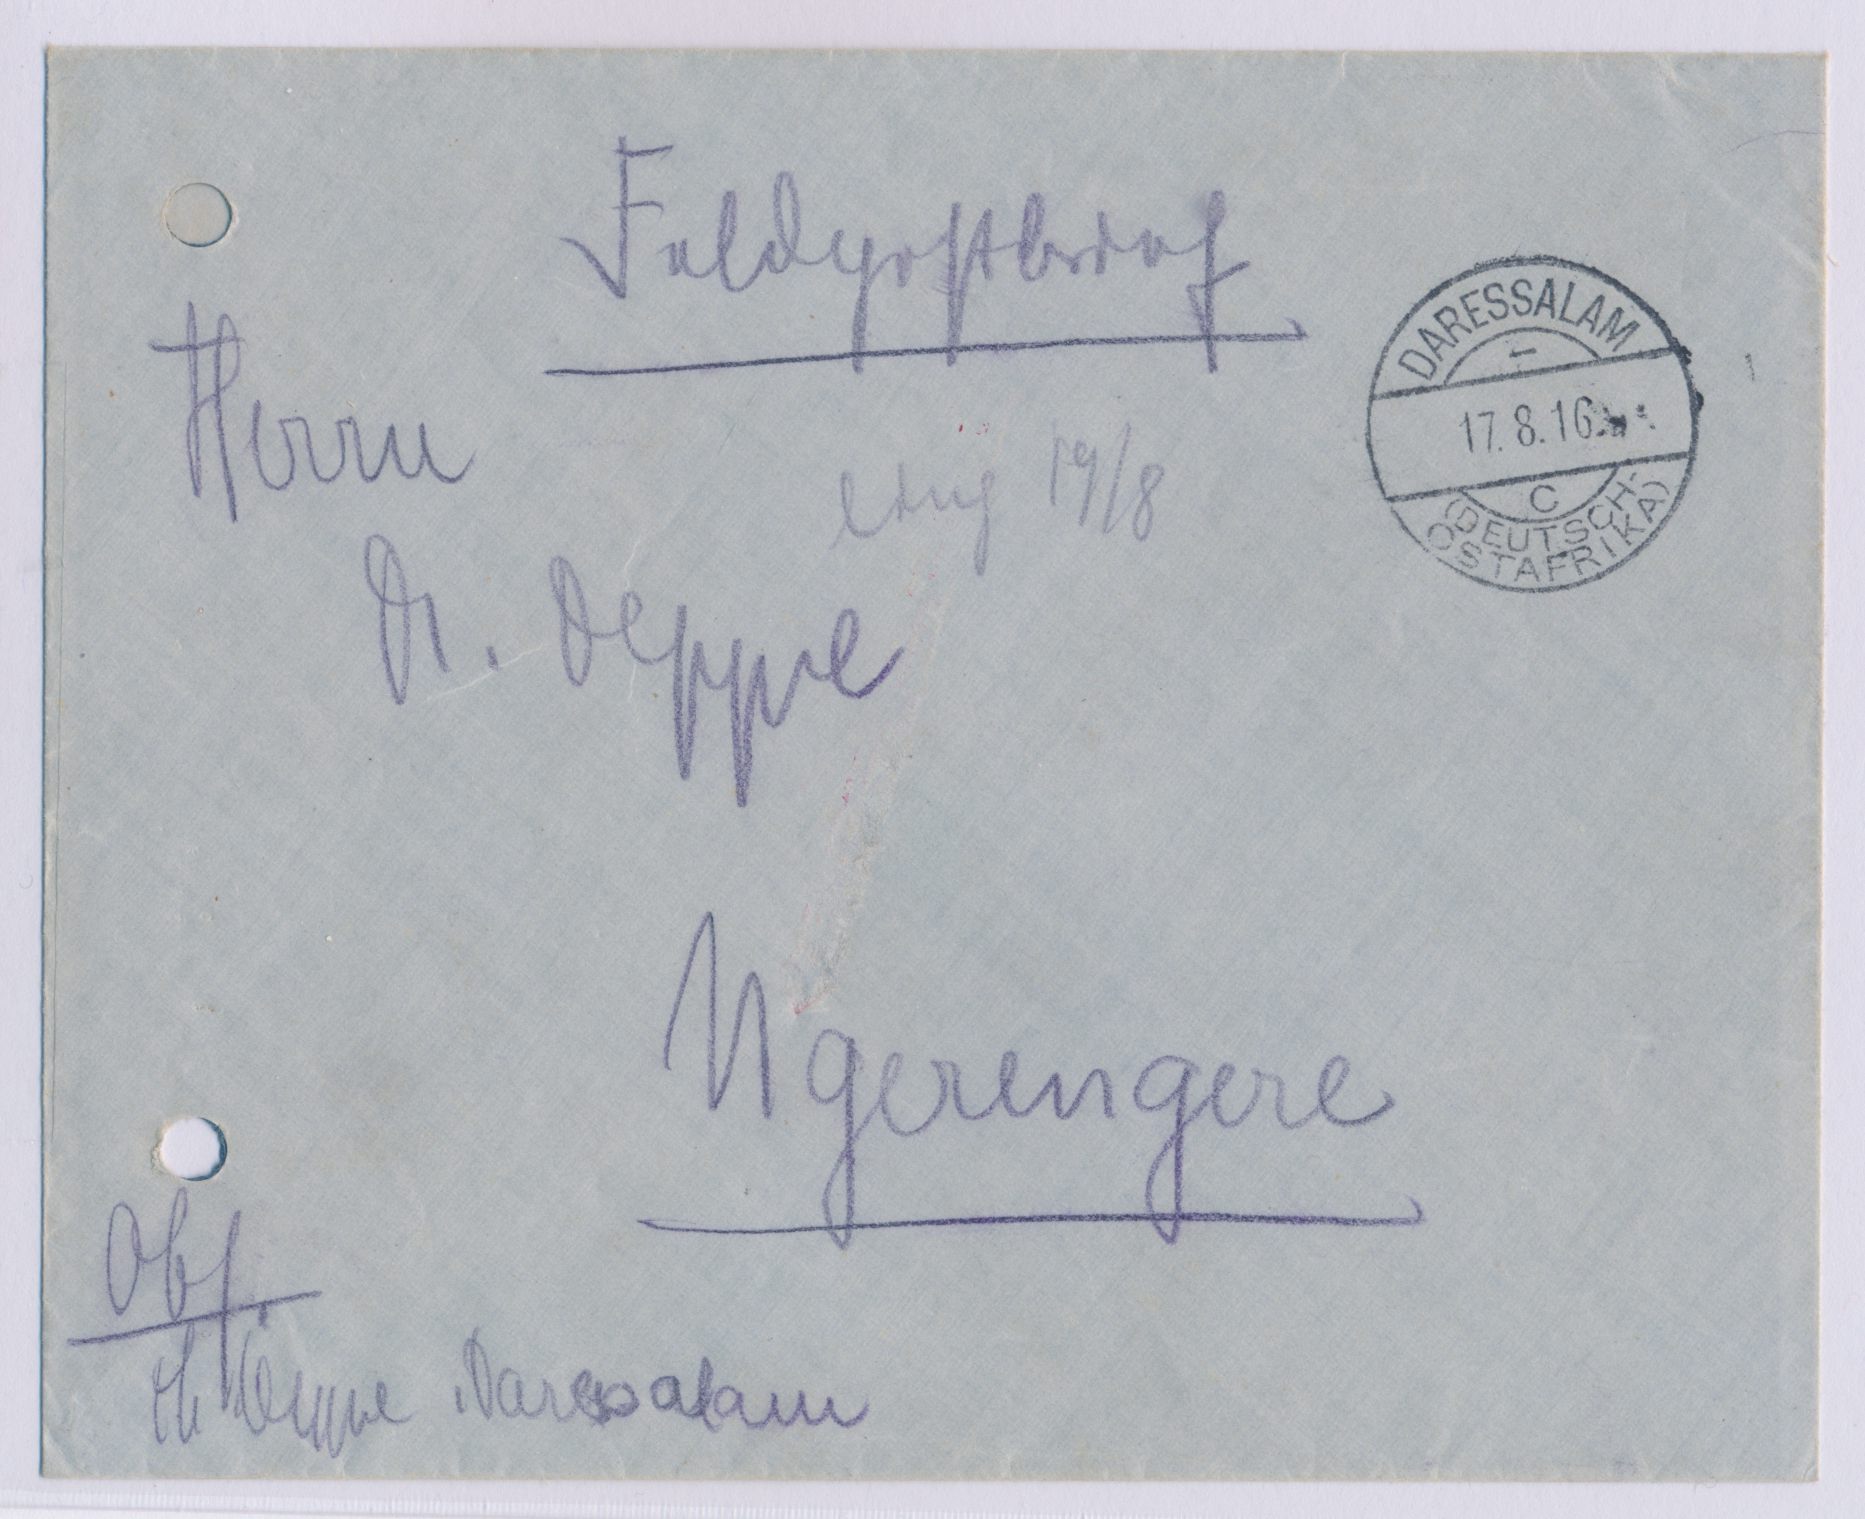 Feldpostbrief
DARESSALAM
17.8.16
C
(DEUTSCH-
OSTAFRIKA)
Herrn
19/8
Dr. Deppe
Ngerengere
Abs.
Deppe Daressalam